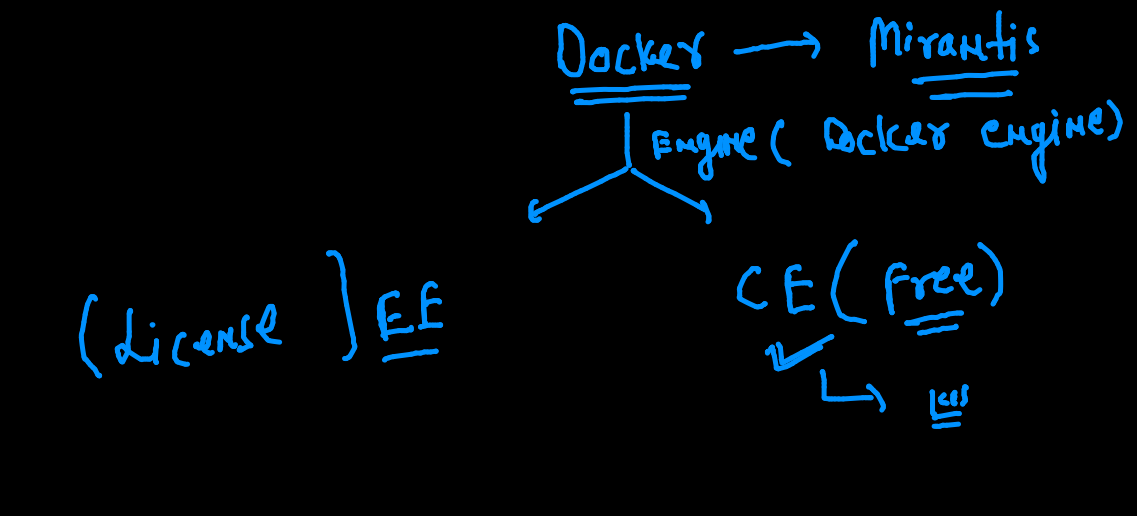 Docker → Mirantis
Engine ( Docker engine)
CE ( Free)
(License ) EE